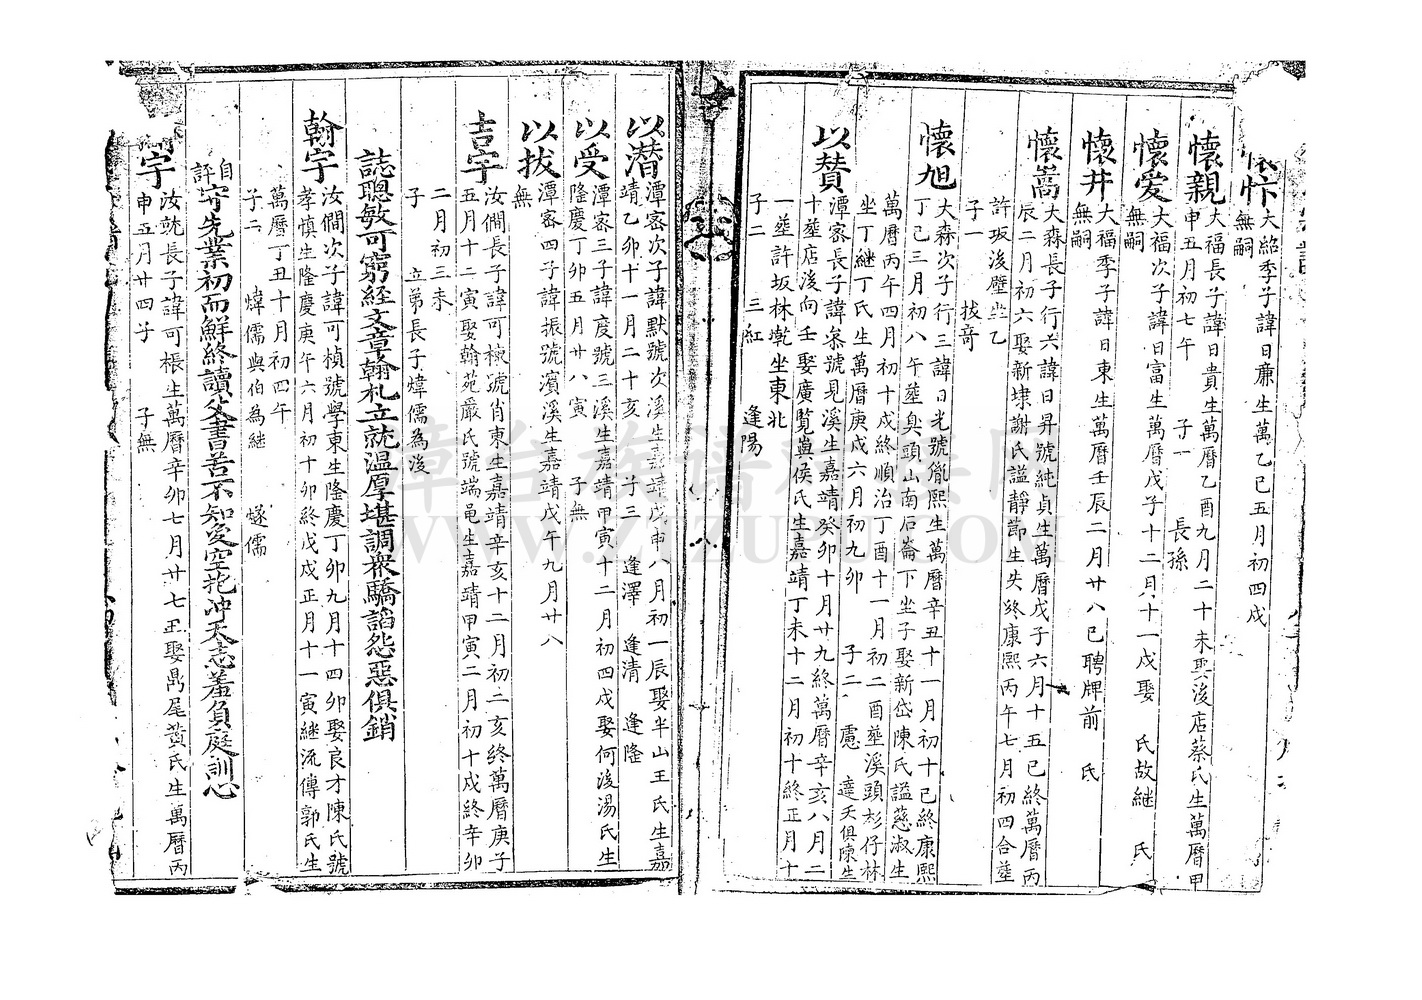 懷忭 大紹季子諱日廉生萬乙巳五月初四戌
無嗣
懷親 大福長子諱日貴生萬曆乙酉九月二十未娶後店蔡氏生萬曆甲
申五月初七午 子一 長孫
懷爱 大福次子諱日富生萬曆戊子十二月十一戌娶 氏故継 氏
無嗣
懷井 大福季子諱日東生萬曆壬辰二月廿八巳聘牌前 氏
無嗣
懷嵩 大森長子行六諱日昇號純貞生萬曆戊子六月十五巳終萬曆丙
辰二月初六娶新埭謝氏謚靜莭生失終康熙丙午七月初四合塟
許坂後壁坐乙
子一 拔竒
懷旭 大森次子行三諱日光號胤熙生萬曆辛丑十一月初十巳終康熙
丁巳三月初八午塟臭頭山南后崙下坐子娶新岱陳氏謚慈淑生
萬曆丙午四月初十戌終順治丁酉十一月初二酉塟溪頭杉仔林
坐丁継丁氏生萬曆庚戌六月初九卯 子二 憲 達天俱陳生
以賛 潭宻長子諱 號見溪生嘉靖癸卯十月廿九終萬曆辛亥八月二
十塟店後向壬娶廣覽巽侯氏生嘉靖丁未十二月初十終正月十
一塟許坂林墘坐東北
子二 三紅 逢陽
以潛 潭宻次子諱默號次溪生嘉靖戊申八月初一辰娶半山王氏生嘉
靖乙卯十一月二十亥 子三 逢澤 逢清 逢隆
以受 潭宻三子諱度號三溪生嘉靖甲寅十二月初四戌娶何後湯氏生
隆慶丁卯五月廿八寅 子無
以拔 潭宻四子諱振號濱溪生嘉靖戊午九月廿八
無
吉宇 汝僩長子諱可楗號肖東生嘉靖辛亥十二月初二亥終萬曆庚子
五月十二寅娶翰苑嚴氏號端黾生嘉靖甲寅二月初十戌終辛卯
二月初三未
子 立弟長子煒儒為後
誌聰敏可窮経文章翰札立就溫厚堪調衆驕謟怨惡俱銷
翰宇 汝僩次子諱可楨號學東生隆慶丁卯九月十四卯娶良才陳氏號
孝慎生隆慶庚午六月初十卯終戊戌正月十一寅継流傳郭氏生
萬曆丁丑十月初四午
子二 煒儒與伯為継 燧儒
自許守先業初而鮮終讀父書苦不知変空抱冲天志羞負庭訓心
宇 汝兟長子諱可根生萬曆辛卯七月廿七丑娶鳥尾黃氏生萬曆丙
申五月廿四子 子無